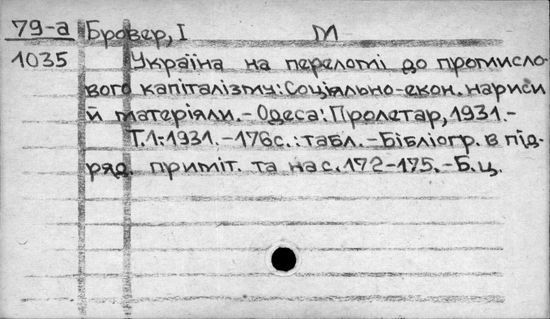 79-а Бровер, І М
1035 Україна на переломі до промисло-
вого капіталізму: Соціяльно-екон. нариси
й матеріяли.-Одеса: Пролетар, 1931.-
Т.1:-1931.-176с.: табл.-Бібліогр. в під-
ряд. приміт. та на с.172-175.-Б.ц.